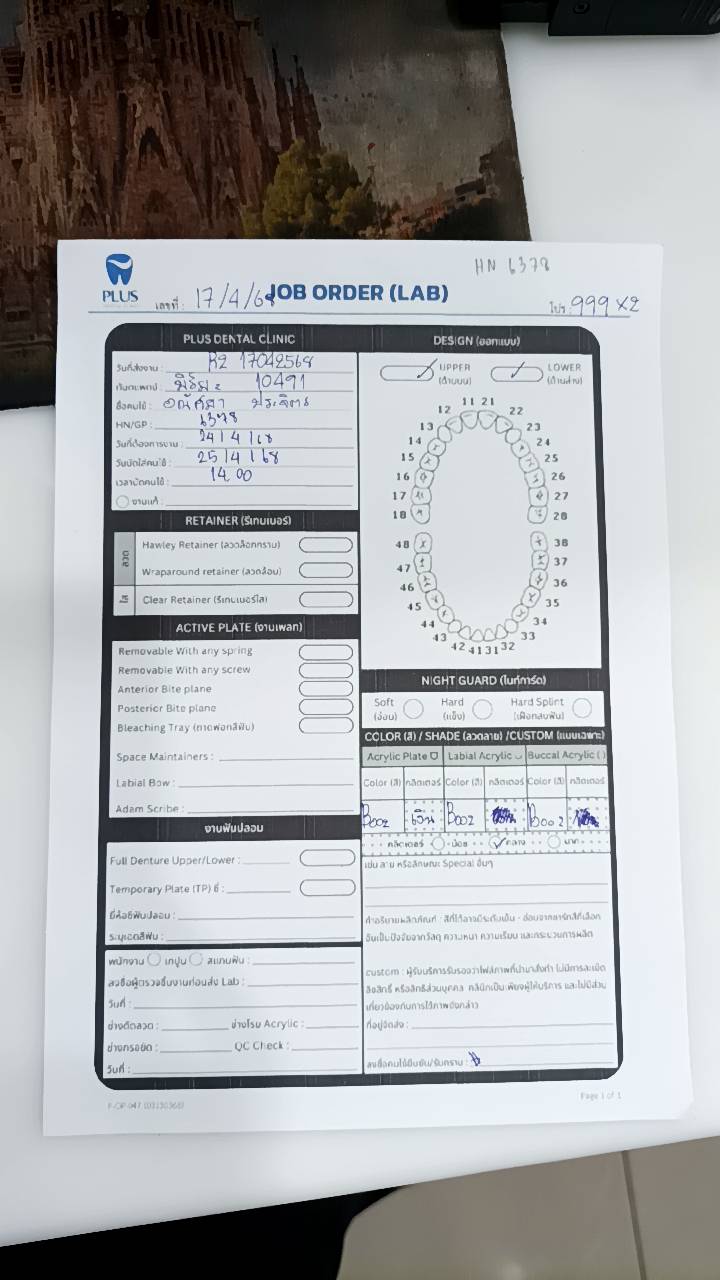 HN 6378
PLUS
เลขที่ : 17/4/68
JOB ORDER (LAB)
โปร : 999 x2
PLUS DENTAL CLINIC
วันที่ส่งงาน : R2 17042568
ทันตแพทย์ : 10491
ชื่อคนไข้ :
HN/GP : 6378
วันที่ต้องการงาน : 24/4/68
วันนัดใส่คนไข้ : 25/4/68
เวลานัดคนไข้ : 14.00
งานแก้ :
RETAINER (รีเทนเนอร์)
ลวด
Hawley Retainer (ลวดล็อกกราม)
Wraparound retainer (ลวดอ้อม)
ใส
Clear Retainer (รีเทนเนอร์ใส)
ACTIVE PLATE (งานเพลท)
Removable With any spring
Removable With any screw
Anterior Bite plane
Posterior Bite plane
Bleaching Tray (ถาดฟอกสีฟัน)
Space Maintainers :
Labial Bow :
Adam Scribe :
งานฟันปลอม
Full Denture Upper/Lower :
Temporary Plate (TP) ซี่ :
ยี่ห้อซี่ฟันปลอม :
ระบุเฉดสีฟัน :
พนักงาน พิมพ์ปูน สแกนฟัน :
ลงชื่อผู้ตรวจชิ้นงานก่อนส่ง Lab :
วันที่ :
ช่างดัดลวด : ช่างโรย Acrylic :
ช่างกรอขัด : QC Check :
วันที่ :
DESIGN (ออกแบบ)
UPPER
(ด้านบน)
LOWER
(ด้านล่าง)
11 21
12 22
13 23
14 24
15 25
16 26
17 27
18 28
48 38
47 37
46 36
45 35
44 34
43 33
42 41 31 32
NIGHT GUARD (ไนท์การ์ด)
Soft
(อ่อน)
Hard
(แข็ง)
Hard Splint
(เฝือกสบฟัน)
COLOR (สี) / SHADE (ลวดลาย) /CUSTOM (แบบเฉพาะ)
Acrylic Plate Labial Acrylic Buccal Acrylic
Color (สี) กลิตเตอร์ Color (สี) กลิตเตอร์ Color (สี) กลิตเตอร์
B002 เงิน B002 B002
กลิตเตอร์ น้อย กลาง มาก
เช่น ลาย หรือลักษณะ Special อื่นๆ
คำอธิบายผลิตภัณฑ์ : สีที่ได้อาจมีระดับเข้ม - อ่อนจากชาร์ทสีที่เลือก
อันเป็นปัจจัยจากวัสดุ ความหนา ความเรียบ และกระบวนการผลิต
custom : ผู้รับบริการรับรองว่าไฟล์ภาพที่นำมาสั่งทำ ไม่มีการละเมิด
ลิขสิทธิ์ หรือสิทธิส่วนบุคคล คลินิกเป็นเพียงผู้ให้บริการ และไม่มีส่วน
เกี่ยวข้องกับการใช้ภาพดังกล่าว
ที่อยู่จัดส่ง :
ลงชื่อคนไข้ยืนยัน/รับทราบ :
Page 1 of 1